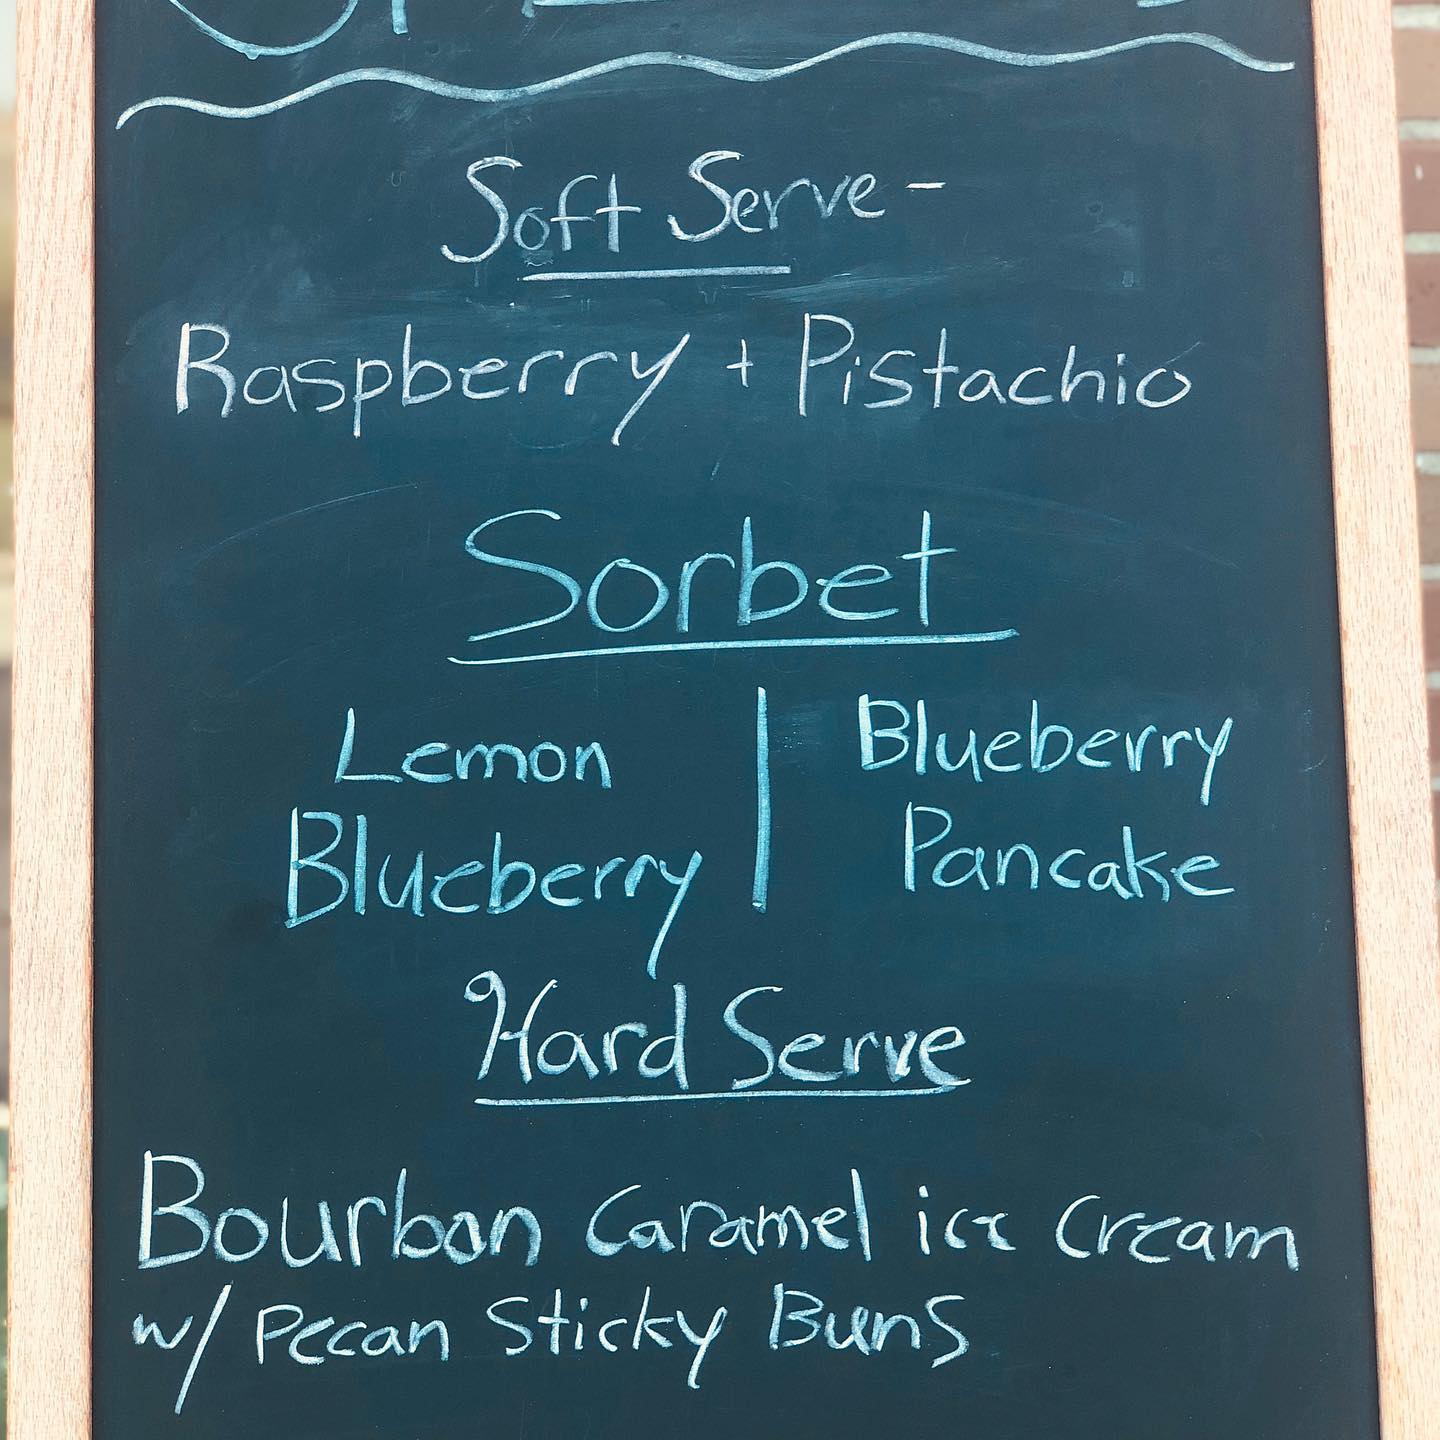 Soft Serve -
Raspberry + Pistachio
Sorbet
Lemon
Blueberry
Blueberry
Pancake
Hard Serve
Bourbon Caramel ice Cream
w/ Pecan Sticky Buns